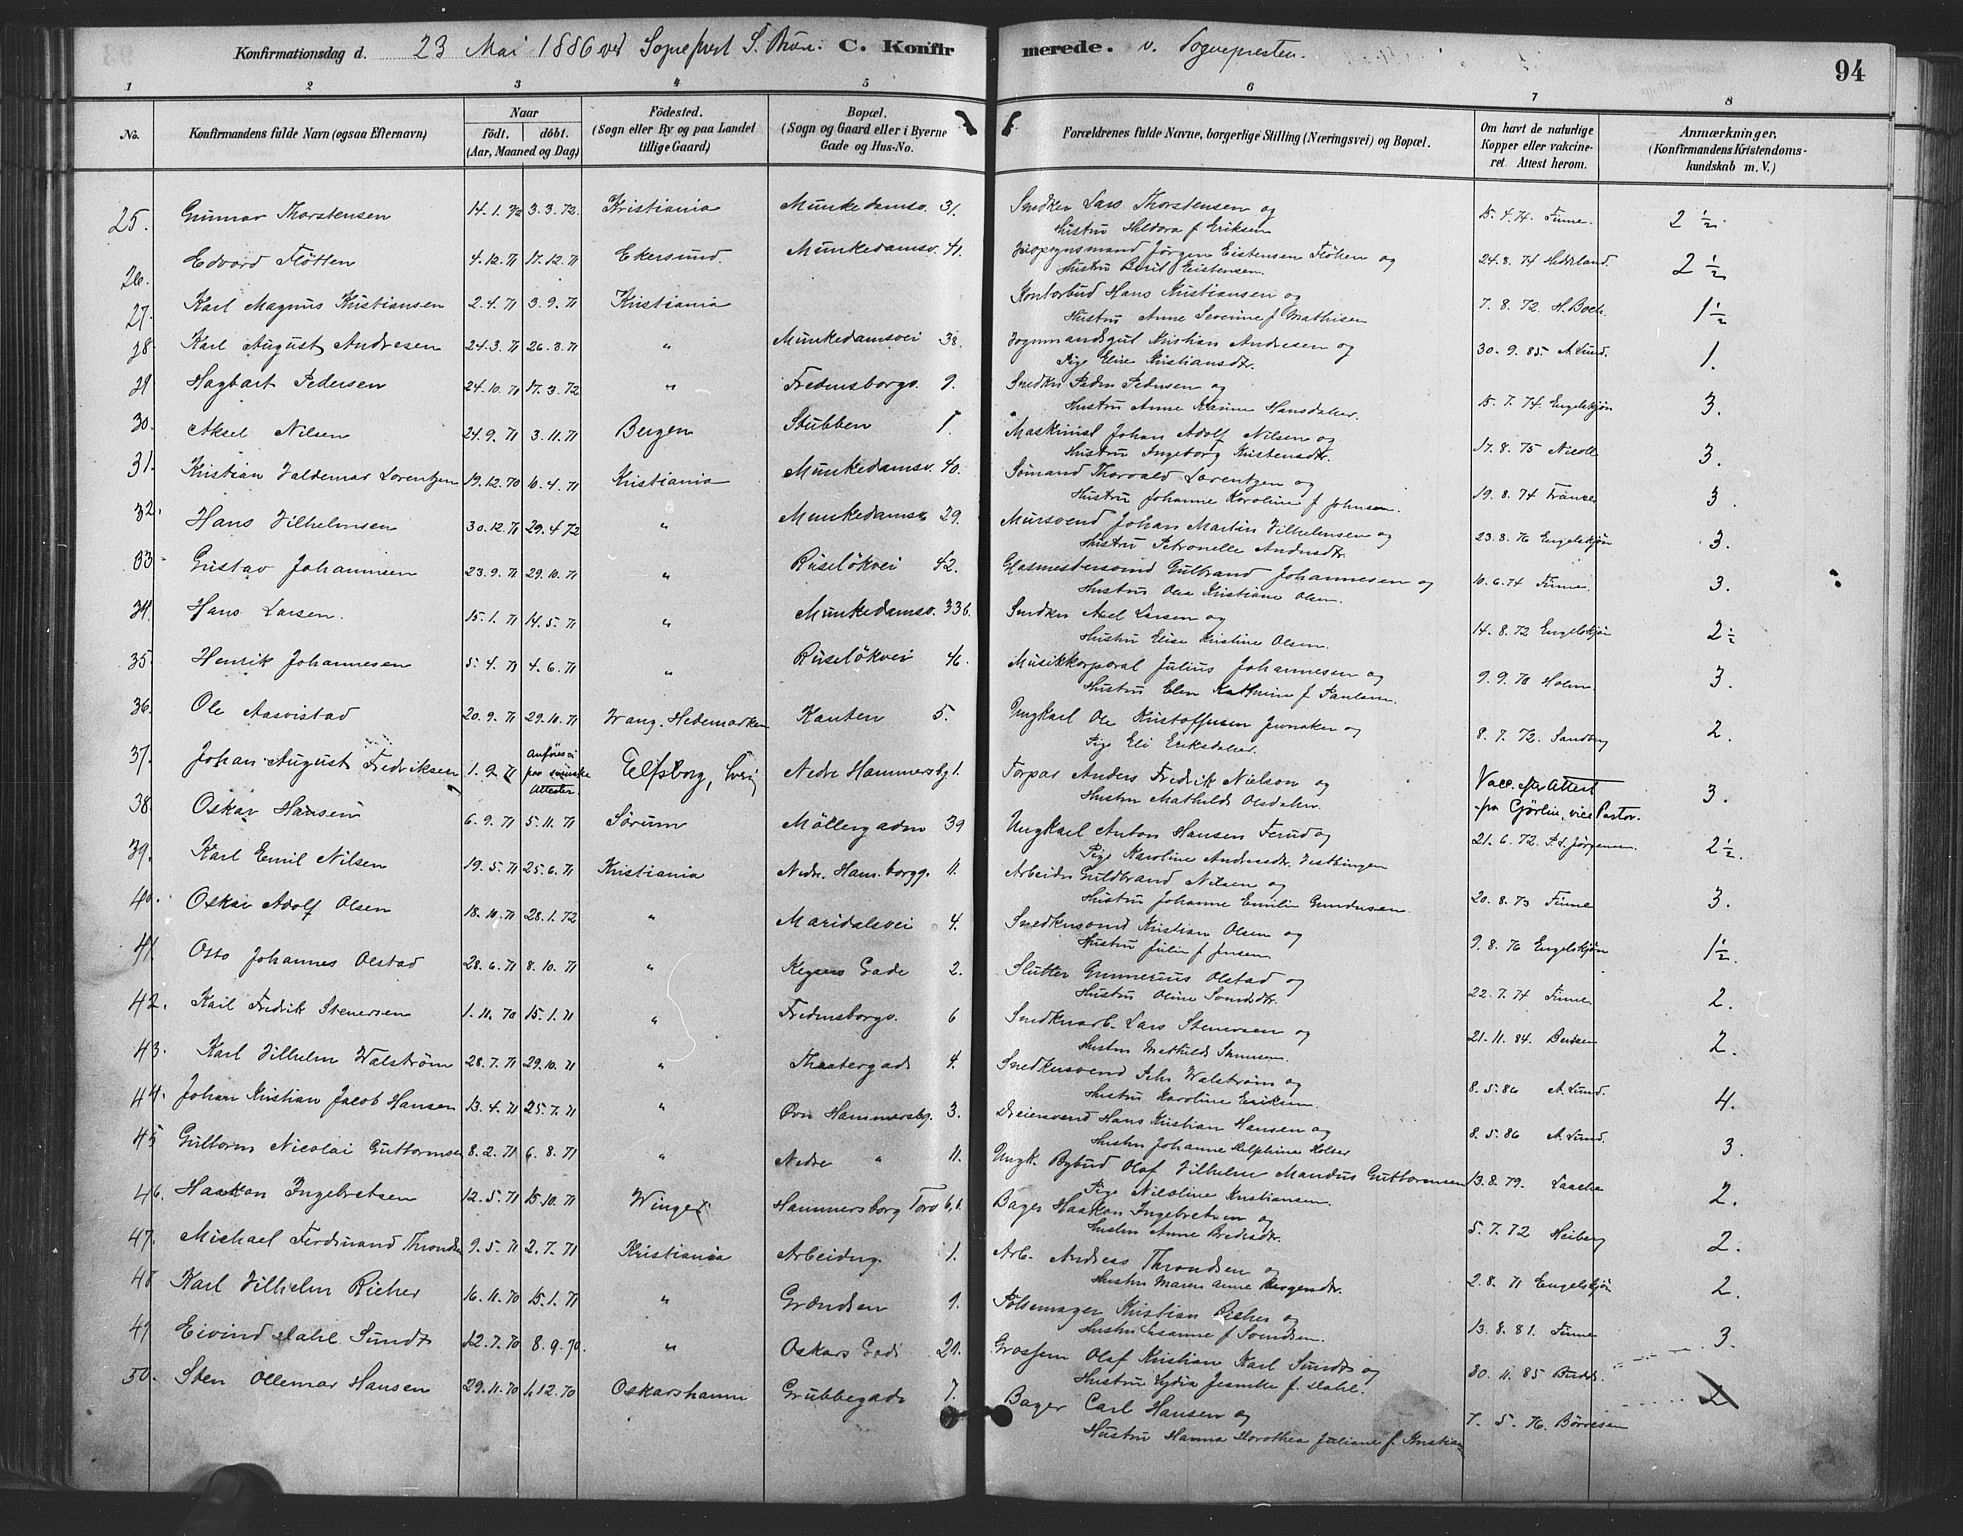 Konfirmationsdag d. 23 Mai 1886 ved Sognepræst S. Brun. C. Konfirmerede. v. Sognepresten. 94
1 2 3 4 5 6 7 8
No. Konfirmandens fulde Navn (ogsaa Efternavn) Naar födt. döbt. (Aar, Maaned og Dag) Födested. (Sogn eller By og paa Landet tillige Gaard) Bopæl. (Sogn og Gaard eller i Byerne Gade og Hus-No. Forældrenes fulde Navne, borgerlige Stilling (Næringsvei) og Bopæl. Om havt de naturlige Kopper eller vakcineret. Attest herom. Anmærkninger. (Konfirmandens Kristendomskundskab m. V.)
25. Gunnar Thorstensen 14.1.72 3.3.72. Kristiania Munkedamsv. 31. Snedker Lars Thorstensen og 15.4.74 Finne. 2 1/2.
Hustru Heldora f. Eriksen
26. Edvard Fløtten 4.12.71 17.12.71 Ekersund. Munkedamsv. 41. Jørgen Eistensen Fløtten og 24.8.74 Hedeland. 2 1/2
Hustru Berit Eistensen.
27. Karl Magnus Kristiansen 2.4.71 3.9.71 Kristiania Kontorbud Hans Kristiansen og 7.8.72 H. Boch. 1 1/2
Hustru Anne Severine f. Mathisen
28. Karl August Andresen 24.3.71 26.3.71 " Munkedamsvei 38. Kristian Andresen og 30.9.85 A. Lund. 1.
Pige Elise Kristiansdtr.
29 Hagbart Pedersen 24.10.71 17.3.72 " Fredensborgv. 9. Snedker Peder Pedersen og 15.7.74 Engelskjøn 3.
Hustru Anne Karine Hansdatter.
30. Aksel Nilsen 24.9.71 3.11.71 Bergen Stubben 1. Maskinist Johan Adolf Nilsen og 17.8.75 Nicoll 3.
Hustru Ingeborg Kristensdtr.
31. Kristian Valdemar Lorentzen 19.12.70 10.4.71 Kristiania Munkedamsv. 40. Sømand Thorvald Lorentzen og 19.8.74 3.
Hustru Johanne Karoline f. Johnsen.
32. Hans Vilhelmsen 30.12.71 29.4.72 " Munkedamsv 29. Mursvend Johan Martin Vilhelmsen og 23.8.76 Engelskjøn 3.
Hustru Petronelle Andersdtr.
33 Gustav Johannesen 23.9.71 29.10.71 " Ruseløkvei 42. Glasmestersvend Gulbrand Johannesen og 10.6.74 Finne. 3.
Hustru Olea Kristiane Olsen.
34. Hans Larsen. 15.1.71 14.5.71 " Munkedamsv. 33b. Snedker Axel Larsen og 14.8.72 Engelskjøn 2 1/2
Hustru Elise Kristine Olsen.
35. Henrik Johannesen 5.4.71 4.6.71 " Ruseløkvei 46. Musikkorporal Julius Johannesen og 9.9.71 Holm 3.
Hustru Elen Kathrine f. Paulsen.
36. Ole Aasvistad 20.9.71 29.10.71 Vang. Hedemarken Kanten 5. Ungkarl Ole Kristoffersen Jevnaker og 8.7.72. Sandberg 2.
Pige Eli Eriksdatter.
37. Johan August Fredriksen 1.9.71 anføres ei paa svenske Attester. Elfsborg, Sverig Nedre Hammersbg 1. Torpar Anders Fredrik Nielson og Vacc. efter Attest fra Görlin, vice Pastor. 3.
Hustru Mathilde Olsdatter.
38. Oskar Hansen 6.9.71 5.11.71 Sørum Møllergaden 39 Ungkarl Anton Hansen Ferud og 21.6.72. Jørgensen. 2 1/2.
Pige Karoline Andersdtr. Vestbingen
39. Karl Emil Nilsen 19.5.71 25.6.71 Kristiania Nedre. Ham.borgg. 11. Arbeider Guldbrand Nilsen og 20.8.73 Finne 3.
Hustru Johanne Emilie Gundersen.
40. Oskar Adolf Olsen 18.10.71 28.1.72 " Maridalsvei 4. Snedkersvend Kristian Olsen og 9.8.76 Engelskjøn 1 1/2.
Hustru Julie f. Jensen
41. Otto Johannes Olstad 28.6.71 8.10.71 " Keysers Gade 2. Slutter Gunnerius Olstad og 22.7.74 Finne 2.
Hustru Oline Svendsdtr.
42. Karl Fredrik Stenersen 1.11.70 15.1.71 " Fredensborgv. 6 Snedkerarb. Lars Stenersen og 21.11.84. 2.
Hustru Mathilde
43. Karl Vilhelm Walstrøm 28.7.71 29.10.71 " Theatergade 4. Snedkersvend Pehr Walstrøm og 8.5.86 A. Lund. 4.
Hustru Karoline Eriksen.
44. Johan Kristian Jacob Hansen 13.4.71 25.7.71 " Øvre Hammersbg. 3. Dreiersvend Hans Kristian Hansen og 8.5.86 A. Lund. 3
Hustru Johanne Delphine Holter
45 Guttorm Nicolai Guttormsen 8.2.71 6.8.71 " Nedre " 11. Ungk. Bybud Olaf Vilhelm Mandus Guttormsen 13.8.79. Laache 2.
Pige Nicoline Kristiansen.
46. Haakon Ingebretsen 12.5.71 15.10.71 Winger Hammersborg Torv 6b. Bager Haakon Ingebretsen og 5.7.72 Heiberg 2.
Hustru Anne Bredesdtr.
47. Michael Ferdinand Throndsen 9.5.71 2.7.71 Kristiania Arbeiderg. 1. Arb. Andreas Throndsen og 2.8.71 Engelskjøn 2.
Hustru Maren Anne Jørgensdtr.
48 Karl Vilhelm Richer 16.11.70 15.1.71 " Grændsen 9. Pølsemager Kristian Richer og 13.8.81. Finne 3.
Hustru Susanne f. Svendsen.
49 Eivind Dahl Sundt 12.7.70 8.9.70. " Oskars Gade 20. Grosserer Olaf Kristian Karl Sundt og 30.11.85 Budde.
Hustru Lydia Jeanette f. Dahl.
50. Sten Ollemar Hansen 29.11.70 1.12.70 Oskarshamn Grubbegade 7. Bager Carl Hansen og 7.5.76. Børresen 2
Hustru Hanna Dorothea Juliane f. Kristian